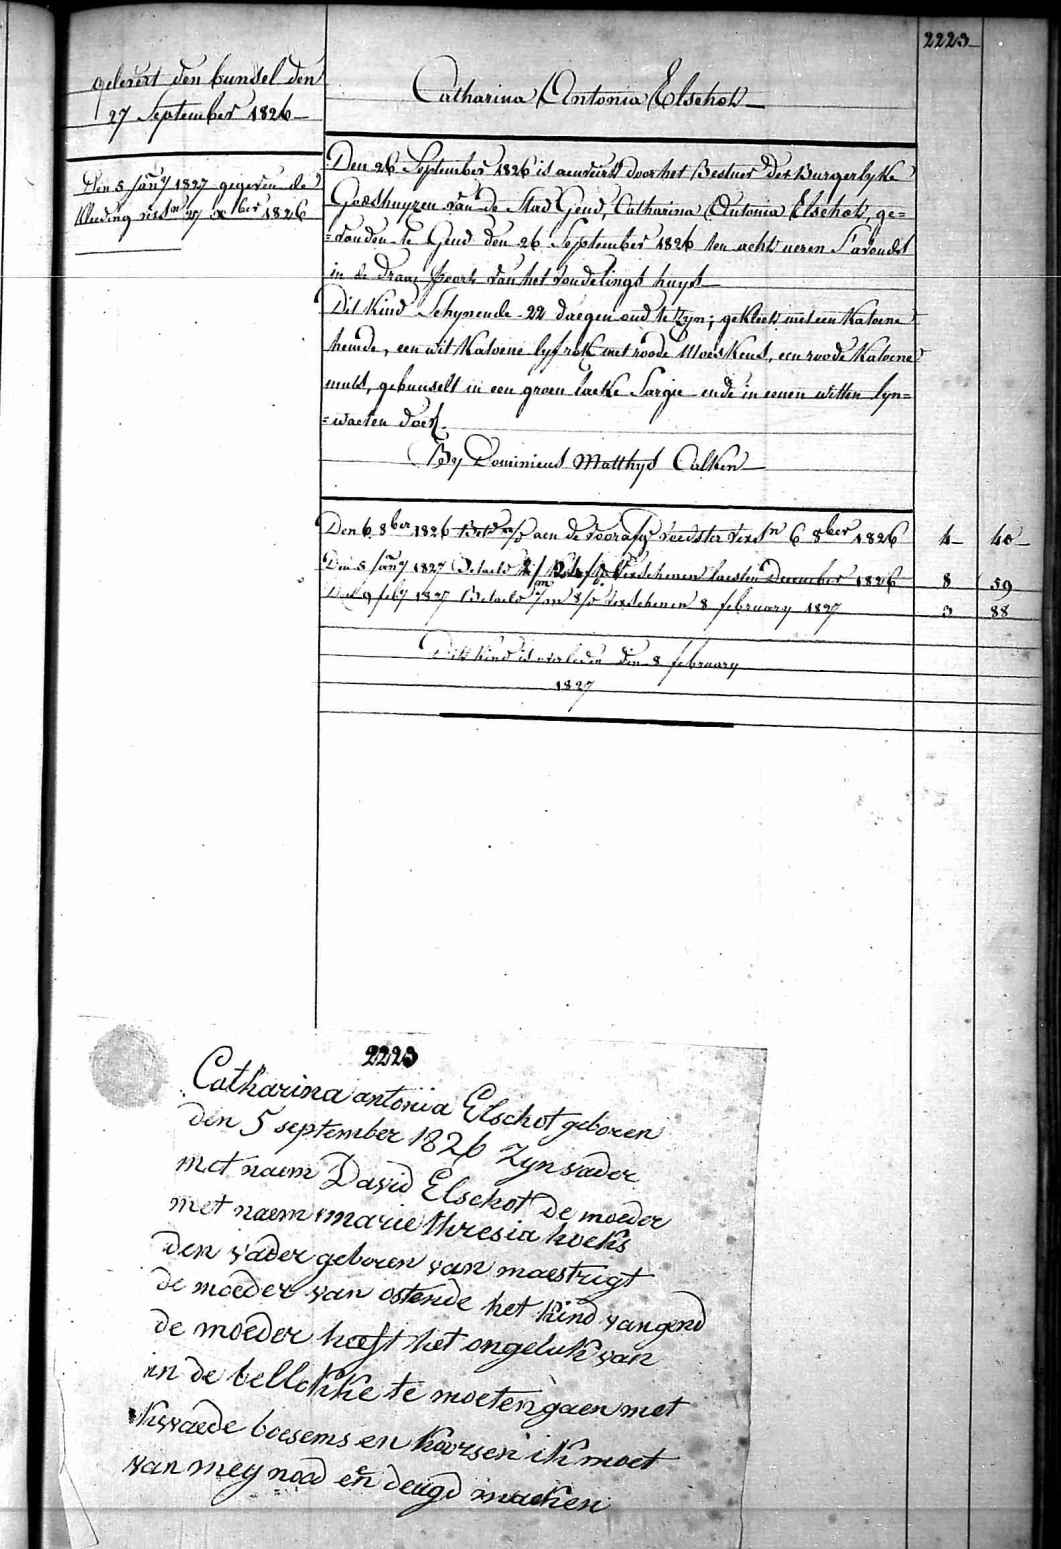 2223
gelevert den bundel den
27 September 1826
Den 5 Jany 1827 gegeven de
kleeding 1826
Catharina Antonia Elschot
Den 26 September 1826 is aenveirt door het Bestuer der Burgerlyke
Godshuyzen van de Stad Gend, Catharina Antonia Elschot, ge=
=vonden te Gend den 26 September 1826 ten acht ueren S'avonds
in de draaj van het vondelings huys
Dit Kind Schynende 22 daegen oud te Zyn; gekleet met een Katoene
hemde, een wit Katoene lyfrok met roode Moeskens, een roode Katoene
muts, gebunselt in een groen laeke Sargie ende in eenen witten lyn=
=waeten doek.
By Dominicus Matthys Calken
Den 6 8ber 1826 aen de voedster 6 8ber 1826 4 40
Den 5 Jany 1827 Betaelt verschenen laesten December 1826 8 59
Den 9 feby 1827 Betaelt verschenen 8 february 1827 3 88
Dit kind is overleden den 8 february
1827
2223
Catharina antonia Elschot geboren
den 5 september 1826 Zyn vader
met naem David Elschot de moeder
met naem marie thresia hoeks
den vader geboren van maestrigt
de moeder van ostende het kind van gend
de moeder heeft het ongeluk van
in de bellokke te moeten gaen met
kwaede boesems en koorsen ik moet
van mey nood een deugd macken